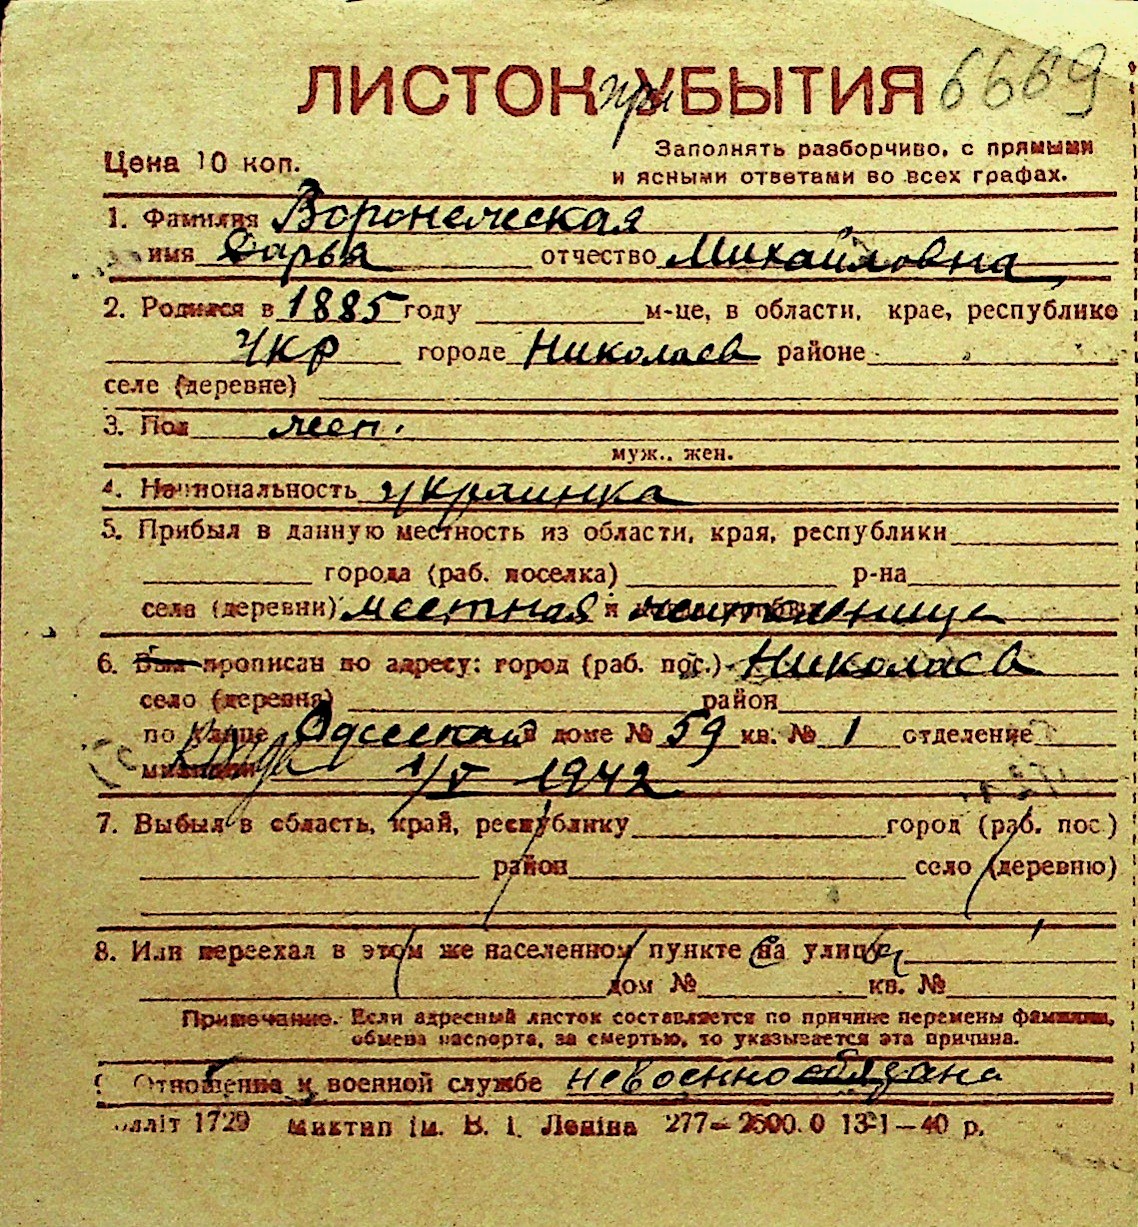 ЛИСТОК при УБЫТИЯ 6669
Цена 10 коп.
Заполнять разборчиво, с прямыми
и ясными ответами во всех графах.
1. Фамилия Воронежская
имя Дарья отчество Михайловна
2. Родился в 1885 году м-це, в области, крае, республике
Укр городе Николаев районе
селе (деревне)
3. Пол жен.
муж., жен.
4. Национальность украинка
5. Прибыл в данную местность из области, края, республики
города (раб. поселка) р-на
села (деревни) местная
6. Был прописан по адресу: город (раб. пос.) Николаев
село (деревня) район
по улице Одесская в доме № 59 кв. № 1 отделение
милиции 1/V 1942
7. Выбыл в область, край, республику город (раб. пос.)
район село (деревню)
8. Или переехал в этом же населенном пункте на улицу
дом № кв. №
Примечание. Если адресный листок составляется по причине перемены фамилии,
обмена паспорта, за смертью, то указывается эта причина.
Отношение к военной службе невоеннообязана
1729 Миктип ім. В. І. Леніна 277— 2500.0 13-1—40 р.